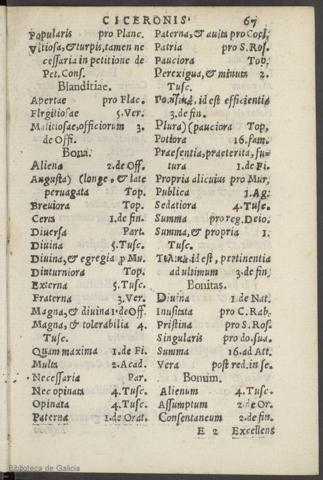 CICERONIS· 67
Popularis pro Planc.
Vitiosa, & turpis, tamen ne
cessaria in petitione de
Pet. Cons.
Blanditiae.
Apertae pro Flac.
Flrgitiosae 5. Ver.
Malitiosae, officiorum 3.
de Offi.
Bona.
Aliena 2. de Off.
Augusta) (longe, & late
peruagata Top.
Breuiora Top.
Certa 1. de fin.
Diuersa Part.
Diuina 5. Tusc.
Diuina, & egregia p Mu.
Diuturniora Top.
Externa 5. Tusc.
Fraterna 3. Ver.
Magna, & diuina 1. de Off.
Magna, & tolerabilia 4.
Tusc.
Quam maxima 1. de Fi.
Multa 2. Acad.
Necessaria Par.
Nec opinata 4. Tusc.
Opinata 4. Tusc.
Paterna 1. de Orat.
Paterna, & auita pro Coel.
Patria pro S. Ros.
Pauciora Top.
Perexigua, & minuta 2.
Tusc.
id est efficientia
3. de fin.
Plura) (pauciora Top.
Potiora 16. fam.
Praesentia, praeterita, fu-
tura 1. de Fi.
Propria alicuius pro Mur.
Publica 1. Ag.
Sedatiora 4. Tusc.
Summa pro reg. Deio.
Summa, & propria 1.
Tusc.
id est, pertinentia
ad ultimum 3. de fin.
Bonitas.
Diuina 1. de Nat.
Inusitata pro C. Rab.
Pristina pro S. Ros.
Singularis pro do. sua.
Summa 16. ad Att.
Vera post red. in se.
Bonum.
Alienum 4. Tusc.
Assumptum 2. de Or.
Consentaneum 2. de fin.
E 2 Excellens
Biblioteca de Galicia